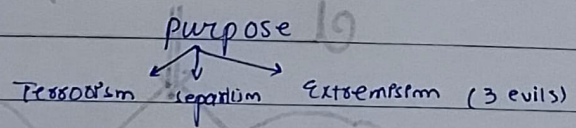 purpose
Terrorism separtism Extremism (3 evils)